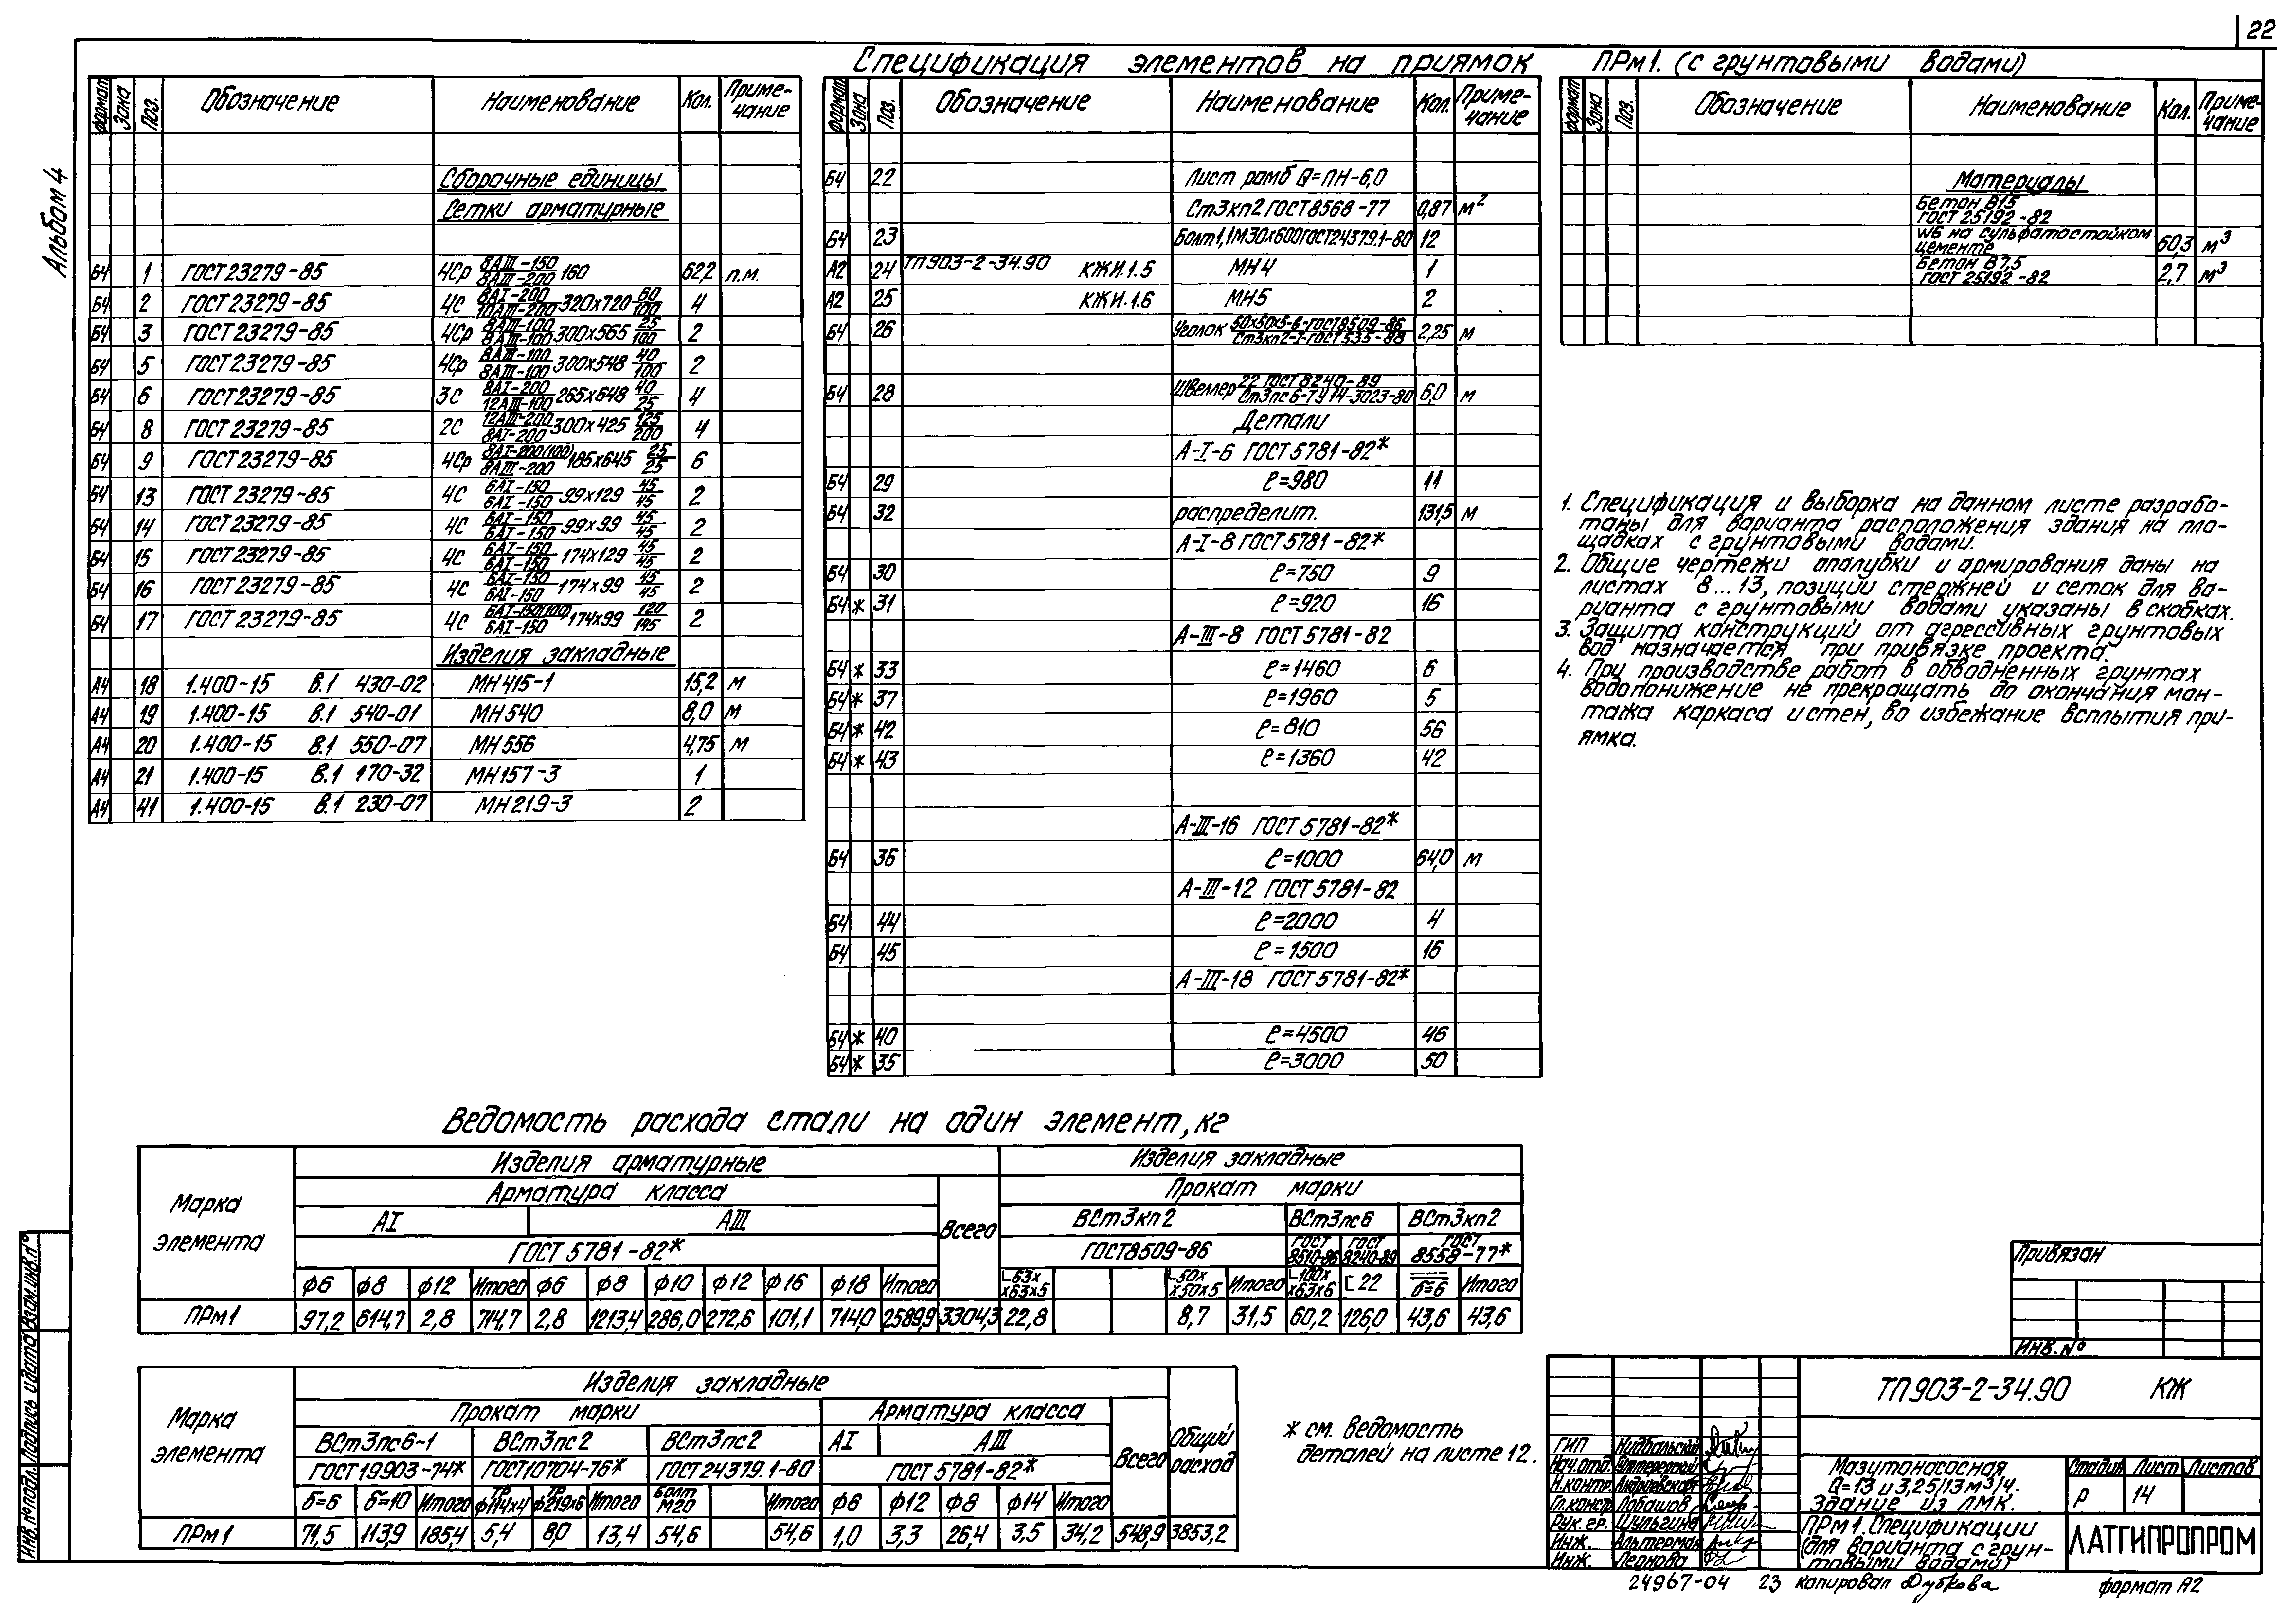 22
Альбом 4
Спецификация элементов на приямок ПРм1. (с грунтовыми водами)
Формат Зона Поз. Обозначение Наименование Кол. Примечание
Сборочные единицы
Сетки арматурные
БЧ 1 ГОСТ 23279-85 4Ср 8АIII-150/8АIII-200 160 62,2 п.м.
БЧ 2 ГОСТ 23279-85 4С 8АI-200/10АIII-200 320х720 60/100 4
БЧ 3 ГОСТ 23279-85 4Ср 8АIII-100/8АIII-100 300х565 25/100 2
БЧ 5 ГОСТ 23279-85 4Ср 8АIII-100/8АIII-100 300х548 40/100 2
БЧ 6 ГОСТ 23279-85 3С 8АI-200/12АIII-100 265х648 40/25 4
БЧ 8 ГОСТ 23279-85 2С 12АIII-200/8АI-200 300х425 125/200 4
БЧ 9 ГОСТ 23279-85 4Ср 8АI-200(100)/8АIII-200 185х645 25/25 6
БЧ 13 ГОСТ 23279-85 4С 6АI-150/6АI-150 99х129 45/45 2
БЧ 14 ГОСТ 23279-85 4С 6АI-150/6АI-150 99х99 45/45 2
БЧ 15 ГОСТ 23279-85 4С 6АI-150/6АI-150 174х129 45/45 2
БЧ 16 ГОСТ 23279-85 4С 6АI-150/6АI-150 174х99 45/45 2
БЧ 17 ГОСТ 23279-85 4С 6АI-150(100)/6АI-150 174х99 120/145 2
Изделия закладные
А4 18 1.400-15 В.1 430-02 МН 415-1 15,2 м
А4 19 1.400-15 В.1 540-01 МН 540 8,0 м
А4 20 1.400-15 В.1 550-07 МН 556 4,75 м
А4 21 1.400-15 В.1 170-32 МН 157-3 1
А4 41 1.400-15 В.1 230-07 МН 219-3 2
Формат Зона Поз. Обозначение Наименование Кол. Примечание
БЧ 22 Лист ромб Q=ПН-6,0
Ст3кп2 ГОСТ 8568-77 0,87 м²
БЧ 23 Болт 1,1М30х600 ГОСТ 24379.1-80 12
А2 24 ТП 903-2-34.90 КЖИ.1.5 МН4 1
А2 25 КЖИ.1.6 МН5 2
БЧ 26 Уголок 50х50х5-Б-ГОСТ 8509-86/Ст3кп2-I-ГОСТ 535-88 2,25 м
БЧ 28 Швеллер 22 ГОСТ 8240-89/Ст3пс6-ТУ14-3023-80 6,0 м
Детали
А-I-6 ГОСТ 5781-82*
БЧ 29 ℓ=980 11
БЧ 32 распределит. 131,5 м
А-I-8 ГОСТ 5781-82*
БЧ 30 ℓ=750 9
БЧ * 31 ℓ=920 16
А-III-8 ГОСТ 5781-82
БЧ * 33 ℓ=1460 6
БЧ * 37 ℓ=1960 5
БЧ * 42 ℓ=810 56
БЧ * 43 ℓ=1360 42
А-III-16 ГОСТ 5781-82*
БЧ 36 ℓ=1000 64,0 м
А-III-12 ГОСТ 5781-82
БЧ 44 ℓ=2000 4
БЧ 45 ℓ=1500 16
А-III-18 ГОСТ 5781-82*
БЧ * 40 ℓ=4500 46
БЧ * 35 ℓ=3000 50
Формат Зона Поз. Обозначение Наименование Кол. Примечание
Материалы
Бетон В15
ГОСТ 25192-82
W6 на сульфатостойком
цементе 60,3 м³
Бетон В7,5
ГОСТ 25192-82 2,7 м³
1. Спецификация и выборка на данном листе разрабо-
таны для варианта расположения здания на пло-
щадках с грунтовыми водами.
2. Общие чертежи опалубки и армирования даны на
листах 8...13, позиции стержней и сеток для ва-
рианта с грунтовыми водами указаны в скобках.
3. Защита конструкций от агрессивных грунтовых
вод назначается при привязке проекта.
4. При производстве работ в обводненных грунтах
водопонижение не прекращать до окончания мон-
тажа каркаса и стен, во избежание всплытия при-
ямка.
Ведомость расхода стали на один элемент, кг
Марка элемента
Изделия арматурные Изделия закладные
Арматура класса Всего Прокат марки
АI АIII ВСт3кп2 ВСт3пс6 ВСт3кп2
ГОСТ 5781-82* ГОСТ 8509-86 ГОСТ 8510-86 ГОСТ 8240-89 ГОСТ 8558-77*
ф6 ф8 ф12 Итого ф6 ф8 ф10 ф12 ф16 ф18 Итого ∟63х х63х5 ∟50х х50х5 Итого ∟100х х63х6 [22 δ=6 Итого
ПРм1 97,2 614,7 2,8 714,7 2,8 1213,4 286,0 272,6 101,1 714,0 2589,9 3304,3 22,8 8,7 31,5 60,2 126,0 43,6 43,6
Марка элемента
Изделия закладные
Прокат марки Арматура класса Всего Общий расход
ВСт3пс6-1 ВСт3пс2 ВСт3пс2 АI АIII
ГОСТ 19903-74* ГОСТ 10704-76* ГОСТ 24379.1-80 ГОСТ 5781-82*
δ=6 δ=10 Итого ТР ф114х4 ТР ф219х6 Итого Болт М20 Итого ф6 ф12 ф8 ф14 Итого
ПРм1 71,5 113,9 185,4 5,4 8,0 13,4 54,6 54,6 1,0 3,3 26,4 3,5 34,2 548,9 3853,2
* см. ведомость
деталей на листе 12.
Привязан
Инв. №
ТП 903-2-34.90 КЖ
ГИП
Нач.отд.
Н.контр. Андриевская
Гл.констр. Лобашов
Рук.гр. Шульгина
Инж. Альтерман
Инж. Леонова
Мазутонасосная
Q=13 и 3,25/13 м³/ч.
Здание из ЛМК.
Стадия Лист Листов
Р 14
ПРм1. Спецификации
(для варианта с грун-
товыми водами)
ЛАТГИПРОПРОМ
24967-04 23 копировал Дубкова формат А2
Инв. № подл. Подпись и дата Взам. инв. №